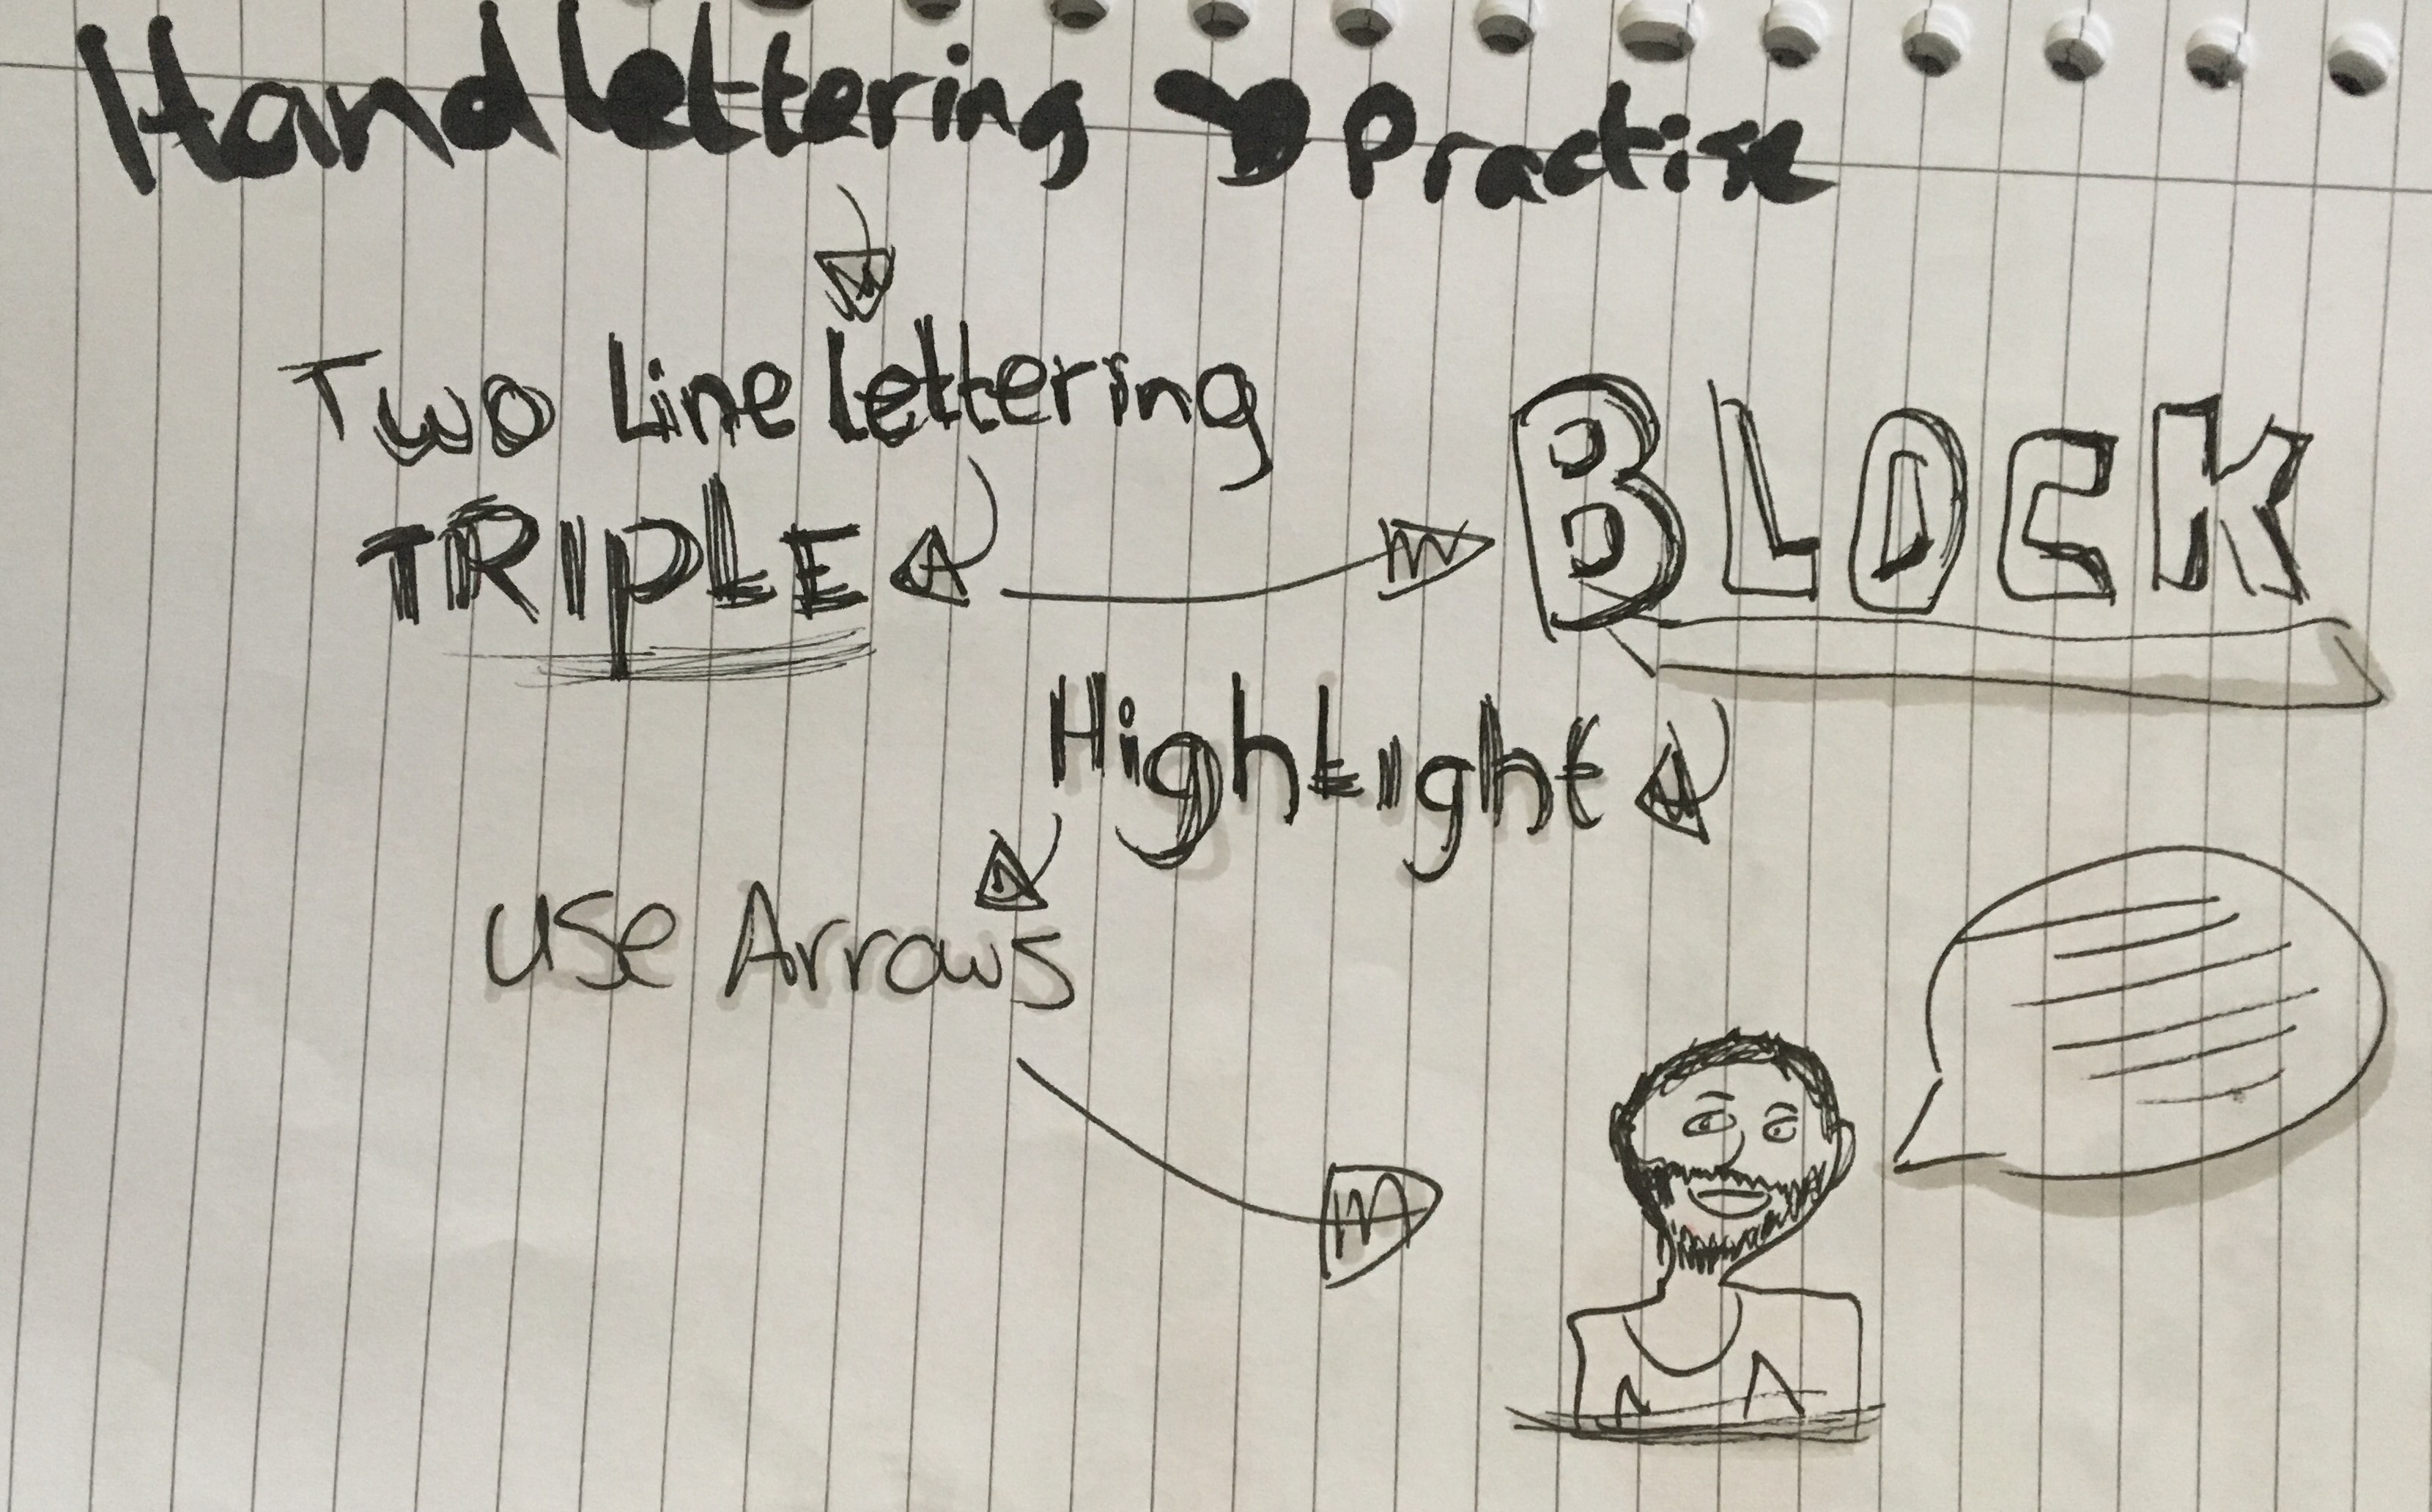 Handlettering Practise
Two Line lettering
TRIPLE
BLOCK
HighLight
Use Arrows